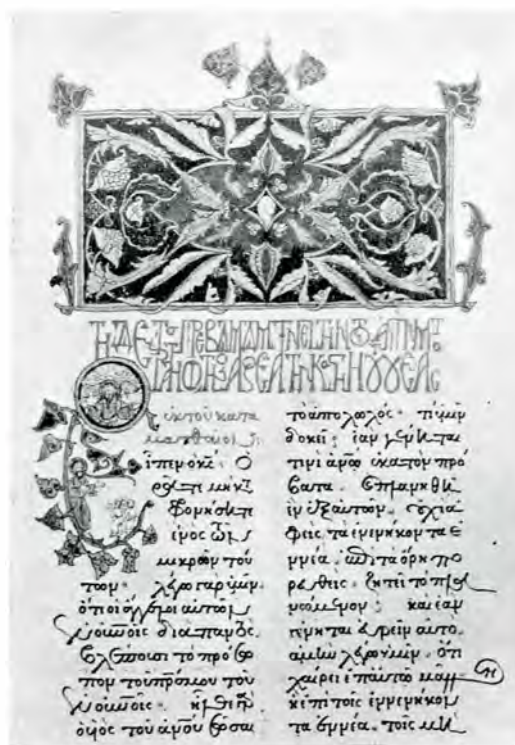 ἐκ τοῦ κατὰ
ματθαῖον
εἶπεν ὁ κς· Ὁ
ρᾶτε μὴ κα
φρονήσητε
ἑνὸς τῶν
μικρῶν τού
των· λέγω γὰρ ὑμῖν·
ὅτι οἱ ἄγγελοι αὐτῶν
ἐν οὐνοῖς διαπαντός·
βλέπουσι τὸ πρόσω
πον τοῦ πρσ μου τοῦ
ἐν οὐνοῖς· ἦλθεν
ὁ υἱὸς τοῦ ἀνου σῶσαι
τὸ ἀπολωλός· τί ὑμῖν
δοκεῖ· ἐὰν γένηται
τινὶ ἀνω ἑκατὸν πρό
βατα· καὶ πλανηθῆ
ἓν ἐξ αὐτῶν· οὐχὶ ἀ
φεὶς τὰ ἐνενήκοντα ἐ
ννέα· ἐπὶ τὰ ὄρη πο
ρευθεὶς· ζητεῖ τὸ πλα
νώμενον· καὶ ἐὰν
γένηται εὑρεῖν αὐτό·
ἀμὴν λέγω ὑμῖν· ὅτι
χαίρει ἐπ αὐτῶ μᾶλ
ἢ ἐπὶ τοῖς ἐνενήκον
τα ἐννέα· τοῖς μὴ